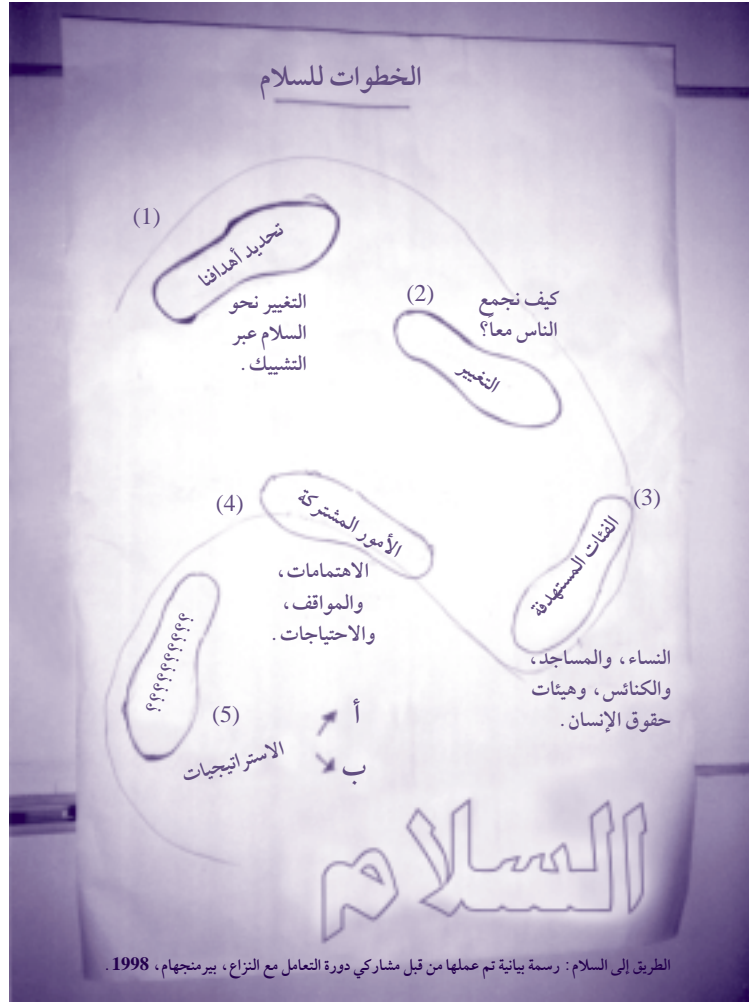 الخطوات للسلام
(1)
تحديد أهدافنا
التغيير نحو
السلام عبر
التشبيك .
(2)
كيف نجمع
الناس معاً؟
التغيير
(3)
الفئات المستهدفة
النساء، والمساجد،
والكنائس، وهيئات
حقوق الإنسان.
(4)
الأمور المشتركة
الاهتمامات،
والمواقف،
والاحتياجات.
؟؟؟؟؟؟؟؟؟؟
(5)
الاستراتيجيات
أ
ب
السلام
الطريق إلى السلام: رسمة بيانية تم عملها من قبل مشاركي دورة التعامل مع النزاع، بيرمنجهام، 1998.